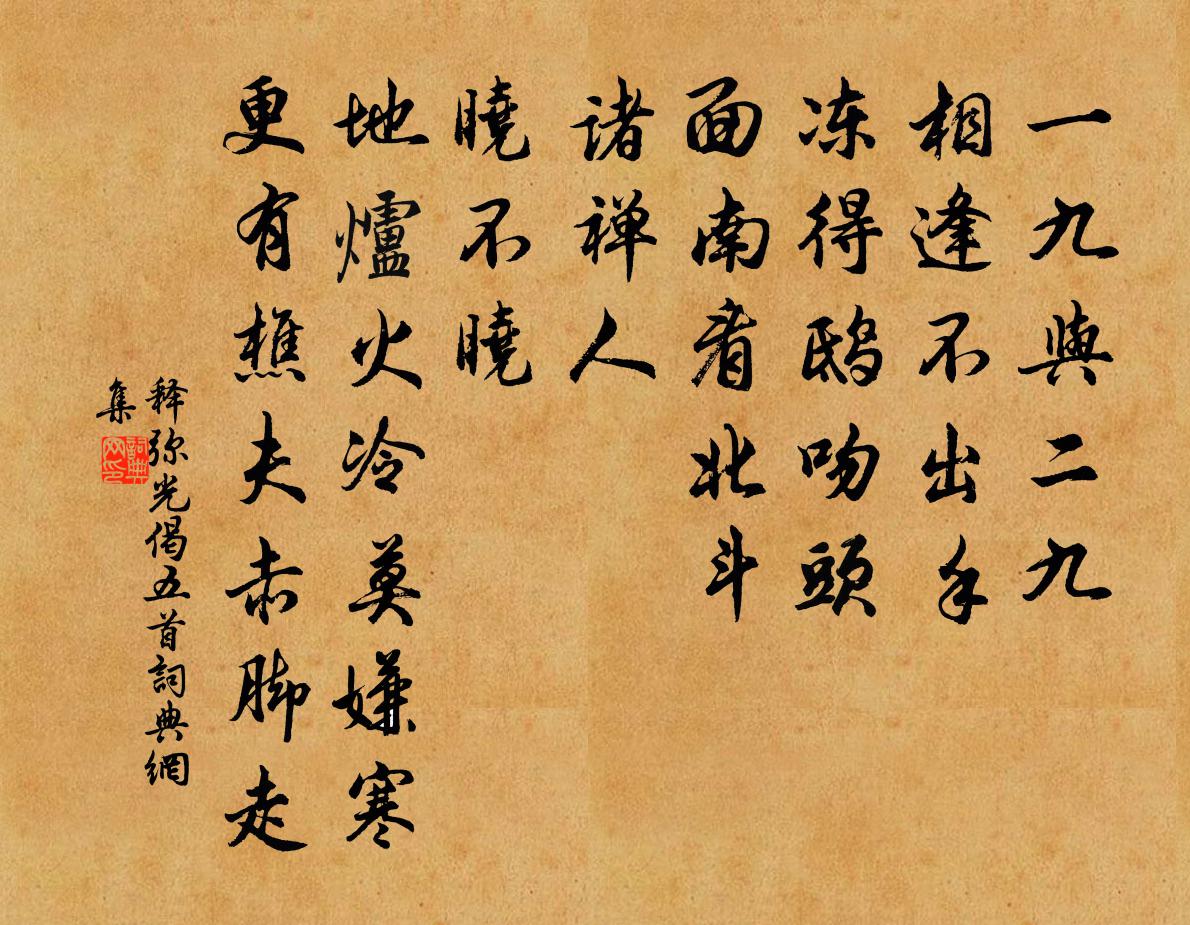 一九與二九
相逢不出手
冻得鴟吻頭
面南看北斗
诸禅人
曉不曉
地爐火冷莫嫌寒
更有樵夫赤脚走
释弥光偈五首詞典網
集
詞典
网印